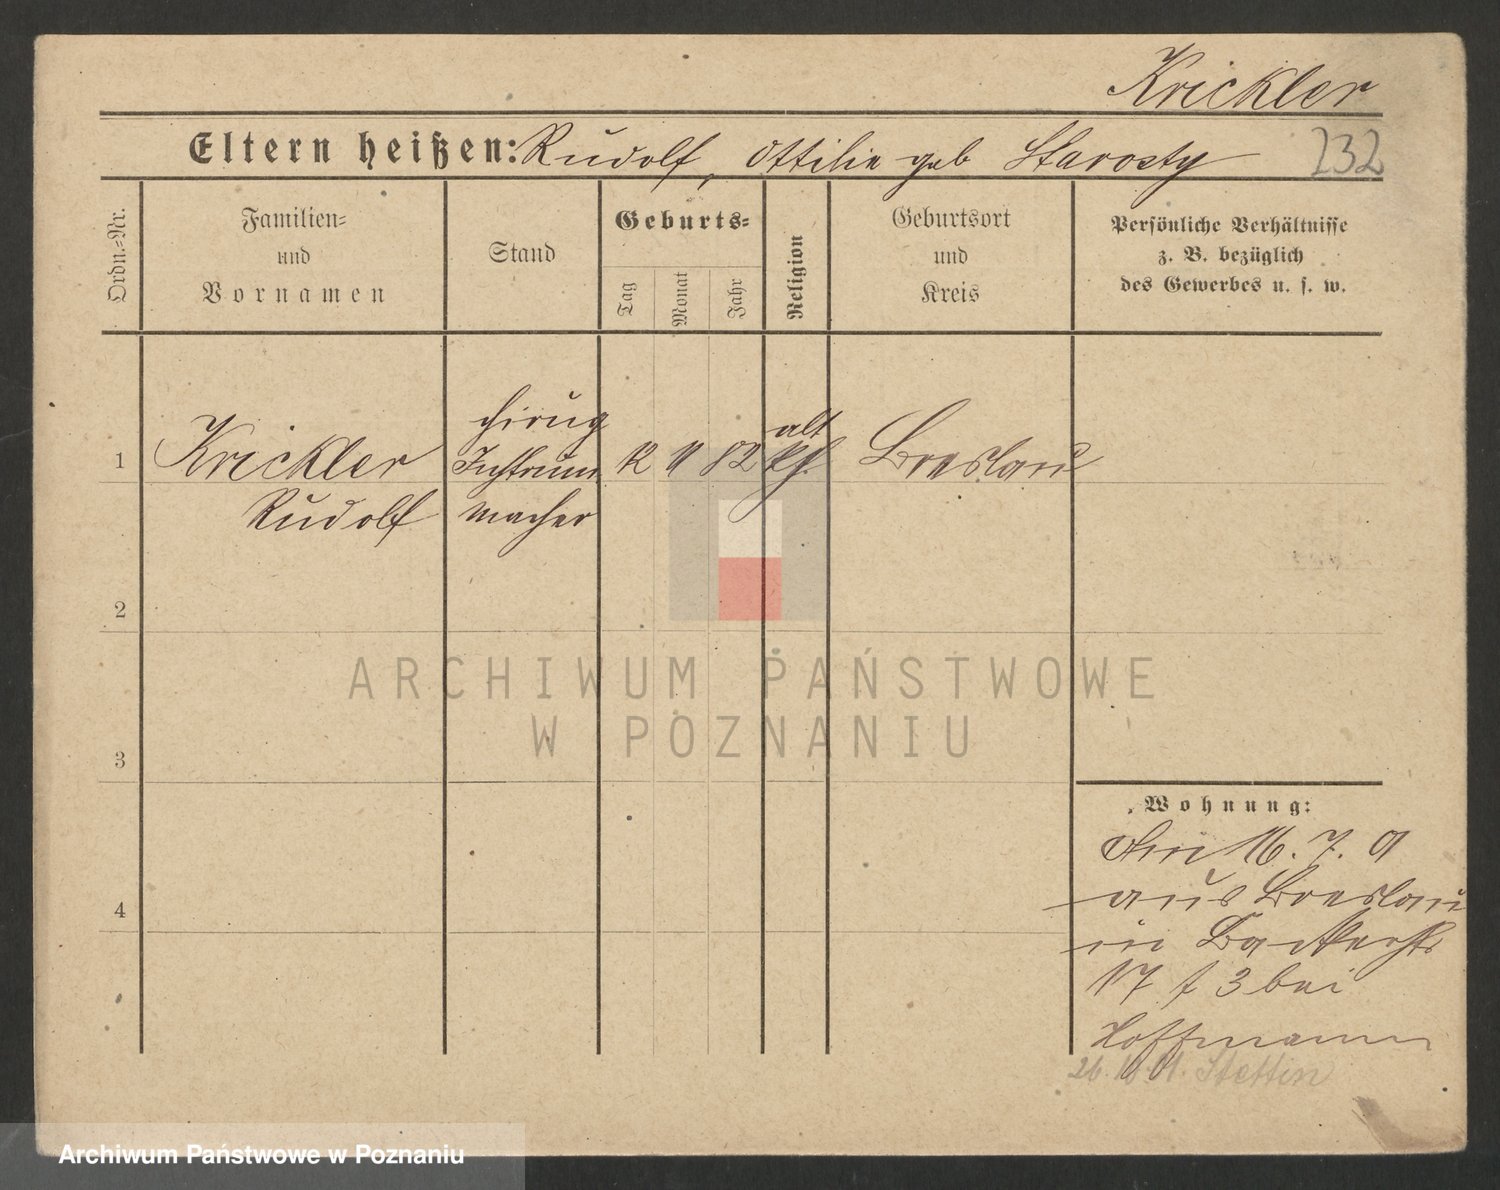 Krickler
Eltern heißen: Rudolf, Ottilie geb Starosty 232
Ordn.=Nr.
Familien=
und
Vornamen
Stand
Geburts=
Tag
Monat
Jahr
Religion
Geburtsort
und
Kreis
Persönliche Verhältnisse
z. B. bezüglich
des Gewerbes u. s. w.
chirug
alt
1 Krickler Instrum 12 11 82 kf. Breslau
Rudolf macher
2
3
4
ARCHIWUM PAŃSTWOWE
W POZNANIU
Wohnung:
16. 7.
aus Breslau
in
17 3 bei
Hoffmann
Stettin
Archiwum Państwowe w Poznaniu